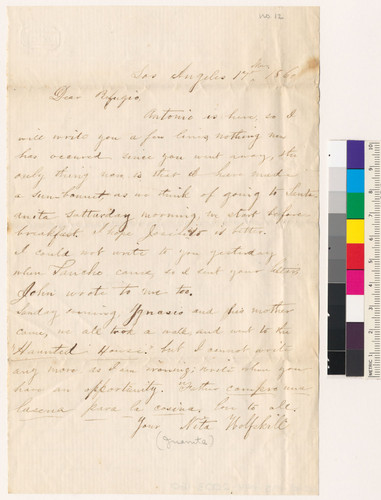 no. 12
Los Angeles 17. Nov 186
Dear Refugio,
Antonio is here, so I
will write you a few lines, nothing new
has occured since you went away, the
only thing new is that I have made
a sun bonnet as we think of going to Santa
anita Satturday morning, we start before
breakfast. I hope Josecito is better.
I could not write to you yesterday
when Pancho came, so I sent your letter
John wrote to me too.
Sunday evening Ygnasio and his mother
came, we all took a walk and went to the
"Haunted House." but I cannot write
any more as I am ironing; write when you
have an oppertunity. Father compro una
lasena para la cosina, love to all.
Your Nota Wolfskill
(Juanita)